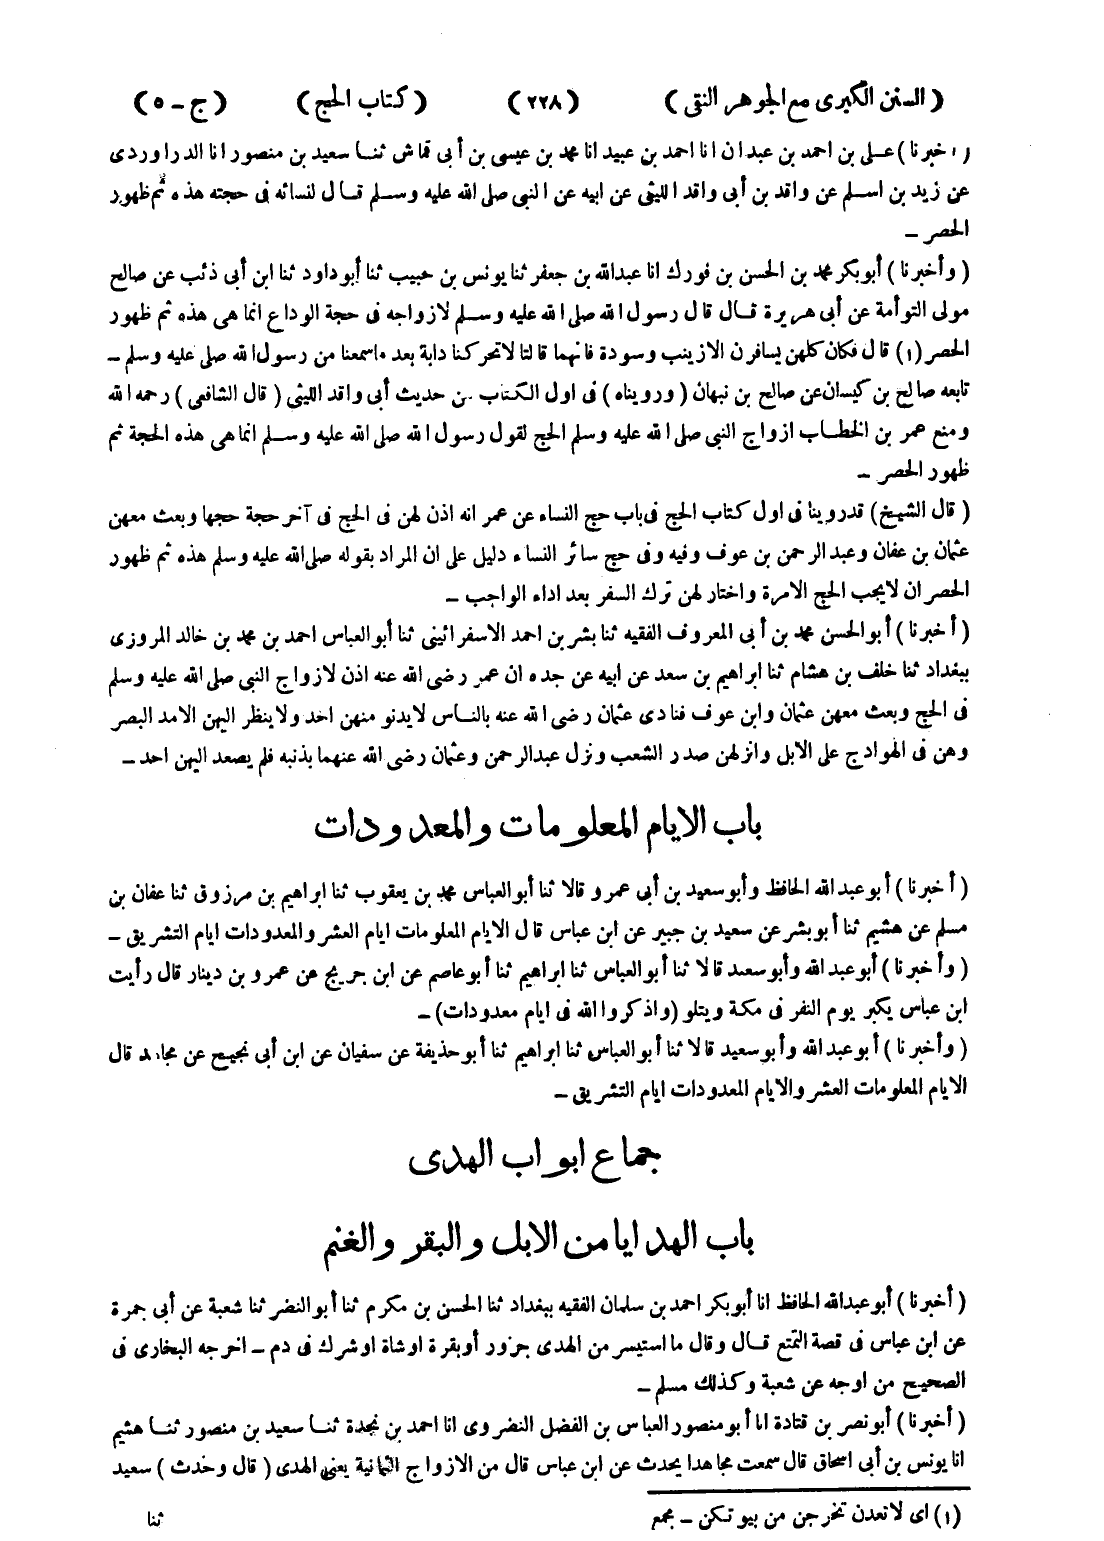 ( السنن الكبرى مع الجوهر النقى ) ( ٢٢٨ ) ( كتاب الحج ) ( ج - ٥ )
( اخبرنا ) على بن احمد بن عبدان انا احمد بن عبيد انا محمد بن عيسى بن أبى قماش ثنا سعيد بن منصور انا الدراوردى
عن زيد بن اسلم عن واقد بن أبى واقد الليثى عن ابيه عن النبى صلى الله عليه وسلم قال لنسائه فى حجته هذه ثم ظهور
الحصر -
( وأخبرنا ) أبوبكر محمد بن الحسن بن فورك انا عبدالله بن جعفر ثنا يونس بن حبيب ثنا أبوداود ثنا ابن أبى ذئب عن صالح
مولى التوأمة عن أبى هريرة قال قال رسول الله صلى الله عليه وسلم لازواجه فى حجة الوداع انما هى هذه ثم ظهور
الحصر (١) قال فكان كلهن يسافرن الازينب وسودة فانهما قالتا لاتحركنا دابة بعد ماسمعنا من رسول الله صلى عليه وسلم -
تابعه صالح بن كيسان عن صالح بن نبهان ( ورويناه ) فى اول الكتاب من حديث أبى واقد الليثى ( قال الشافعى ) رحمه الله
ومنع عمر بن الخطاب ازواج النبى صلى الله عليه وسلم الحج لقول رسول الله صلى الله عليه وسلم انما هى هذه الحجة ثم
ظهور الحصر -
( قال الشيخ ) قدروينا فى اول كتاب الحج فى باب حج النساء عن عمر انه اذن لهن فى الحج فى آخر حجة حجها وبعث معهن
عثمان بن عفان وعبد الرحمن بن عوف وفيه وفى حج سائر النساء دليل على ان المراد بقوله صلى الله عليه وسلم هذه ثم ظهور
الحصر ان لايجب الحج الامرة واختار لهن ترك السفر بعد اداء الواجب -
( أخبرنا ) أبوالحسن محمد بن أبى المعروف الفقيه ثنا بشر بن احمد الاسفرائينى ثنا أبوالعباس احمد بن محمد بن خالد المروزى
ببغداد ثنا خلف بن هشام ثنا ابراهيم بن سعد عن ابيه عن جده ان عمر رضى الله عنه اذن لازواج النبى صلى الله عليه وسلم
فى الحج وبعث معهن عثمان وابن عوف فنادى عثمان رضى الله عنه بالناس لايدنو منهن احد ولاينظر اليهن الامد البصر
وهن فى الهوادج على الابل وانزلهن صدر الشعب ونزل عبدالرحمن وعثمان رضى الله عنهما بذنبه فلم يصعد اليهن احد -
باب الايام المعلومات والمعدودات
( أخبرنا ) أبو عبد الله الحافظ وأبو سعيد بن أبى عمرو قالا ثنا أبوالعباس محمد بن يعقوب ثنا ابراهيم بن مرزوق ثنا عفان بن
مسلم عن هشيم ثنا أبوبشر عن سعيد بن جبير عن ابن عباس قال الايام المعلومات ايام العشر والمعدودات ايام التشريق -
( وأخبرنا ) أبوعبد الله وأبوسعيد قالا ثنا أبوالعباس ثنا ابراهيم ثنا أبوعاصم عن ابن جريج عن عمرو بن دينار قال رأيت
ابن عباس يكبر يوم النفر فى مكة ويتلو (واذكروا الله فى ايام معدودات) -
( وأخبرنا ) أبوعبد الله وأبوسعيد قالا ثنا أبوالعباس ثنا ابراهيم ثنا أبوحذيفة عن سفيان عن ابن أبى نجيح عن مجاهد قال
الايام المعلومات العشر والايام المعدودات ايام التشريق -
جماع ابواب الهدى
باب الهدايا من الابل والبقر والغنم
( أخبرنا ) أبوعبدالله الحافظ انا أبوبكر احمد بن سلمان الفقيه ببغداد ثنا الحسن بن مكرم ثنا أبوالنضر ثنا شعبة عن أبى جمرة
عن ابن عباس فى قصة التمتع قال وقال ما استيسر من الهدى جزور أوبقرة اوشاة اوشرك فى دم - اخرجه البخارى فى
الصحيح من اوجه عن شعبة وكذلك مسلم -
( أخبرنا ) أبونصر بن قتادة انا أبومنصور العباس بن الفضل النضروى انا احمد بن نجدة ثنا سعيد بن منصور ثنا هشيم
انا يونس بن أبى اسحاق قال سمعت مجاهدا يحدث عن ابن عباس قال من الازواج الثمانية يعنى الهدى ( قال وحدث ) سعيد
(١) اى لاتعدن تخرجن من بيوتكن - مجمع
ثنا